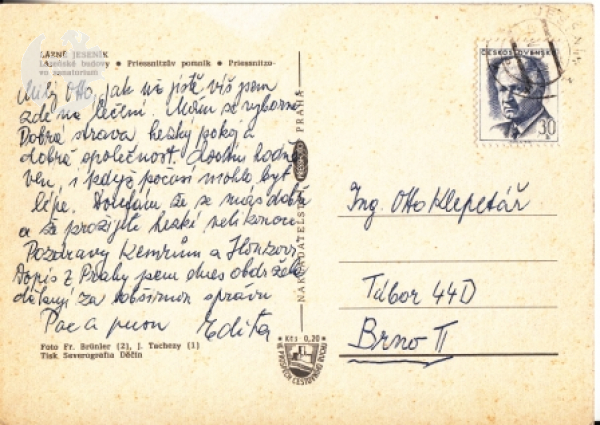 LÁZNĚ JESENÍK
Lázeňské budovy • Priessnitzův pomník • Priessnitzo-
vo sanatorium
Milý Otto, jak už jistě víš jsem
zde na léčení. Mám se výborně
Dobrá strava hezký pokoj a
dobrá společnost. Chodím hodně
ven, i když počasí mohlo být
lépe. Doufám že se máš dobře
a že prožijete hezké velikonoce
Pozdravy
Dopis z Prahy jsem dnes obdržela
děkuji za zprávu
Pac a pusu Edita
Foto Fr. Brünler (2), J. Tachezy (1)
Tisk Severografia Děčín
NAKLADATELSTVÍ
PRAHA
Kčs 0,20
VE PROSPĚCH CESTOVNÍHO RUCHU
ČESKOSLOVENSKO
30
Ing. Otto Klepetář
Tábor 44D
Brno II